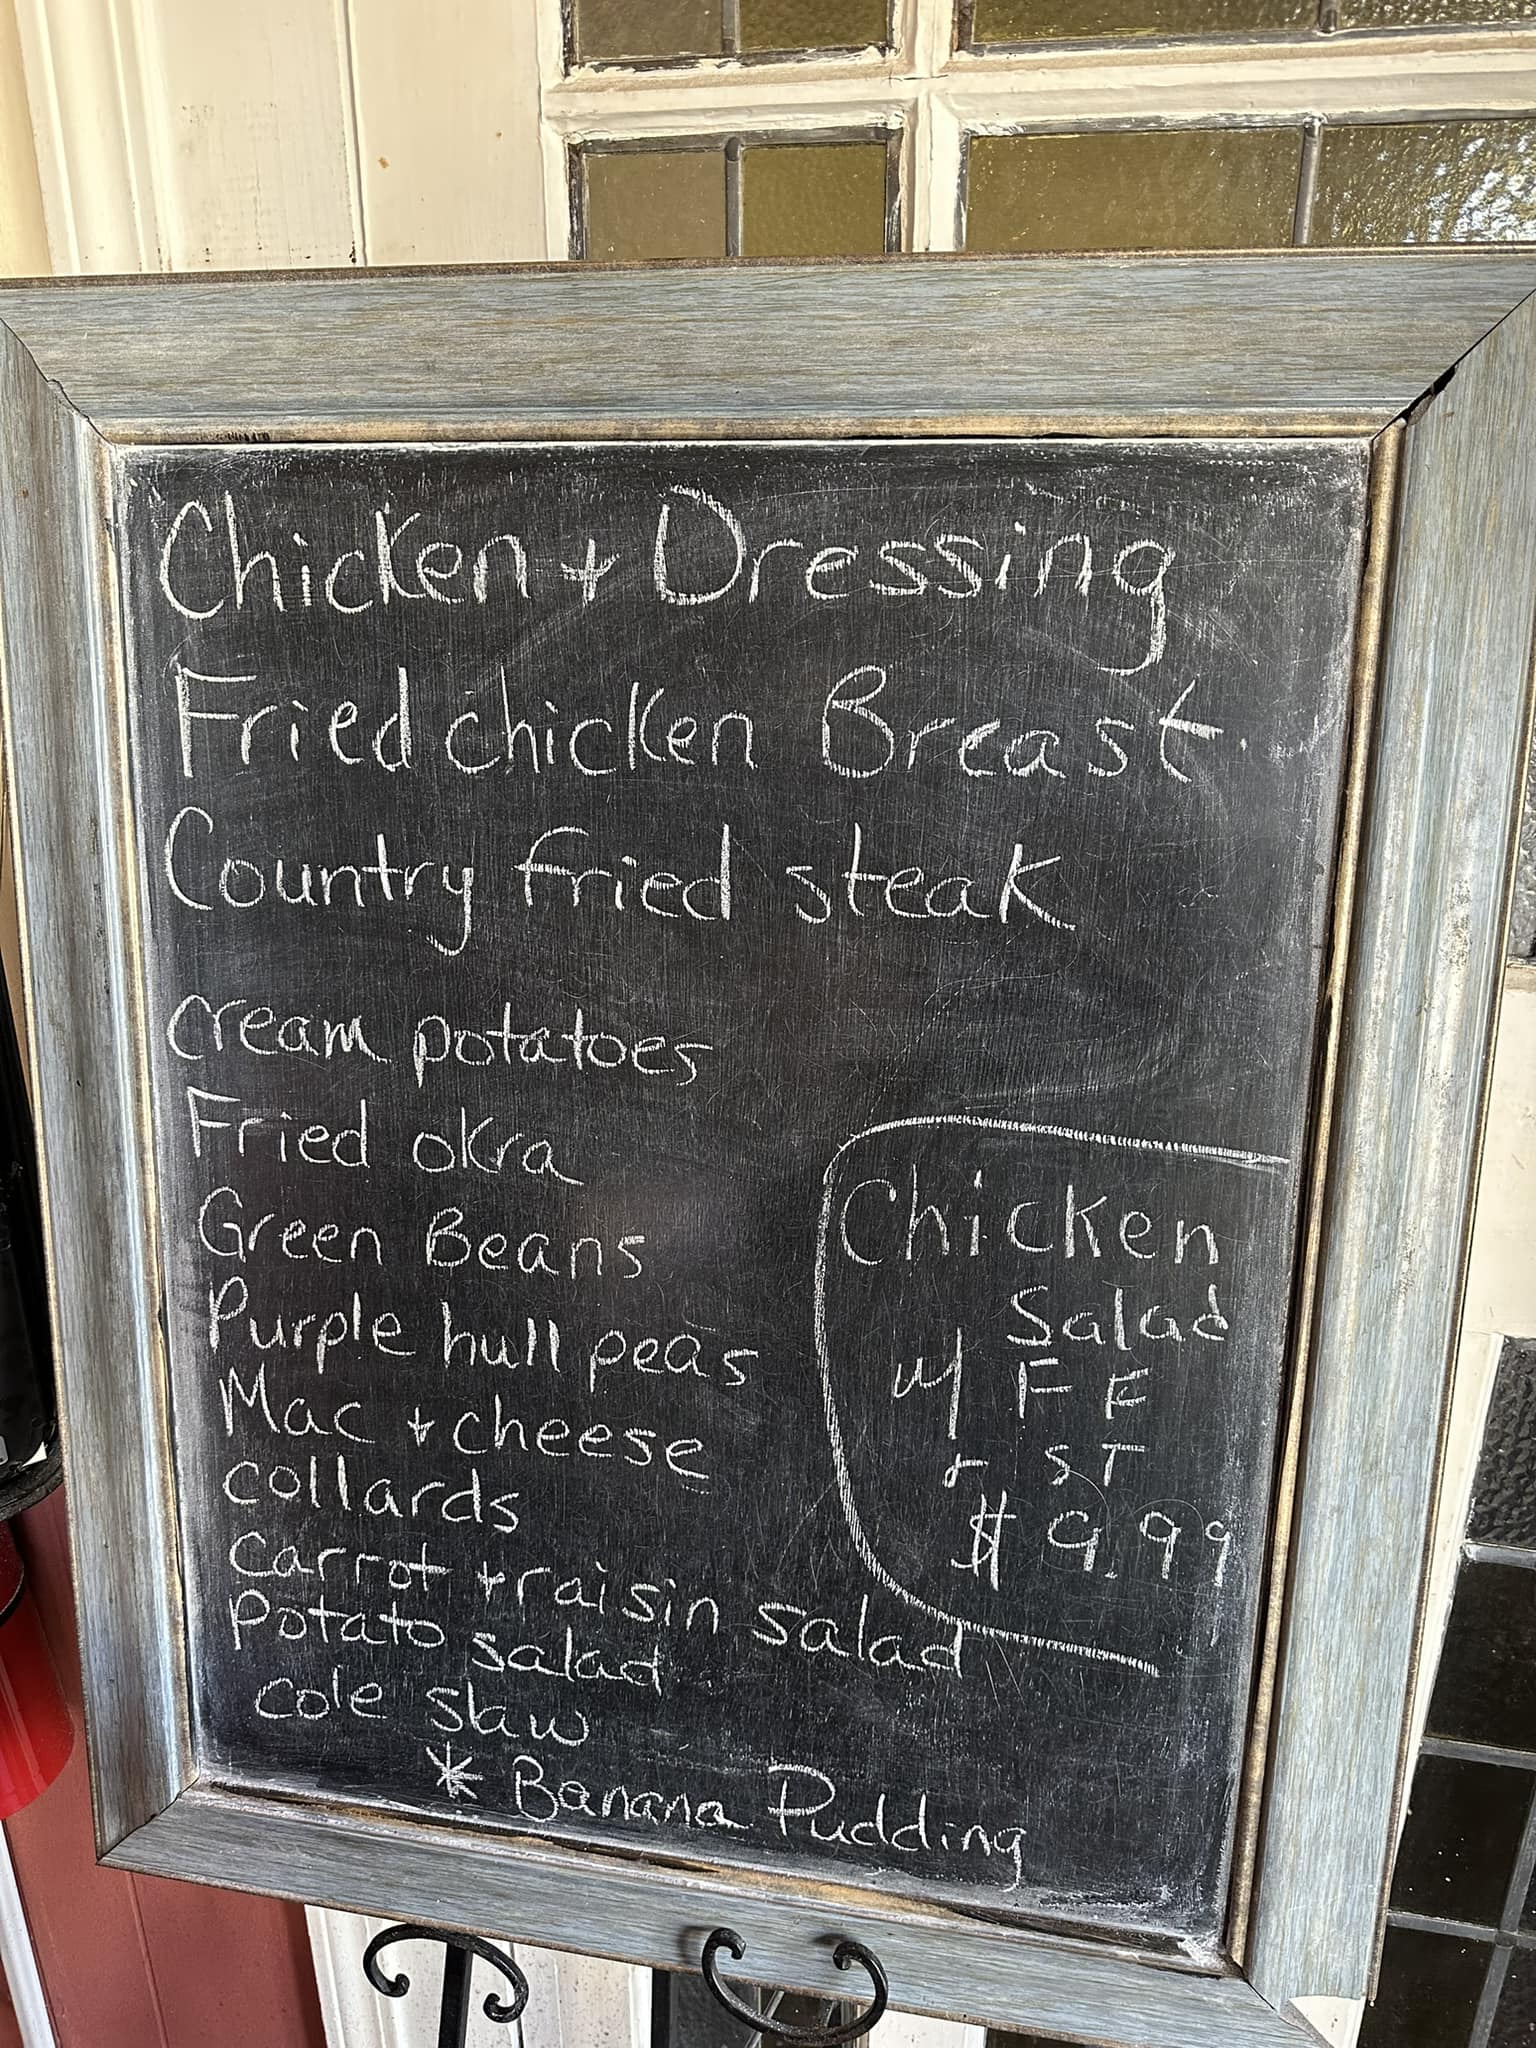 Chicken + Dressing
Fried chicken Breast
Country fried steak
cream potatoes
Fried okra
Green Beans
Purple hull peas
Mac + cheese
collards
carrot + raisin salad
Potato salad
cole slaw
* Banana Pudding
Chicken
Salad
w/ F F
r ST
$9.99